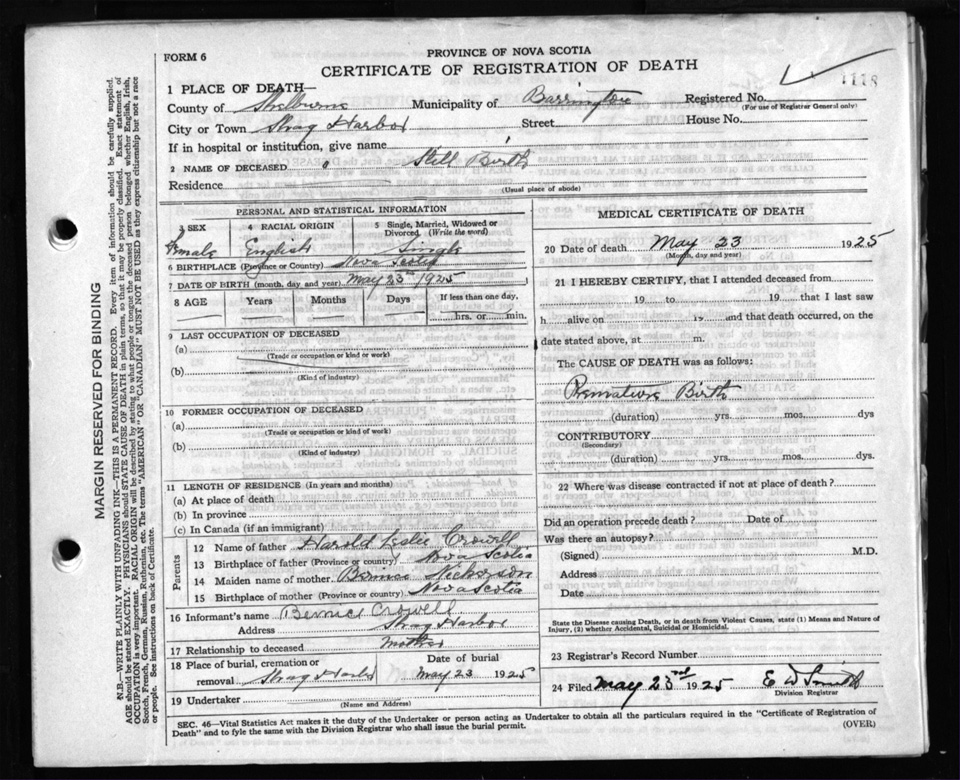 FORM 6
PROVINCE OF NOVA SCOTIA
CERTIFICATE OF REGISTRATION OF DEATH
1118
1 PLACE OF DEATH—
County of Shelburne Municipality of Barrington Registered No.
(For use of Registrar General only)
City or Town Shag Harbor Street House No.
If in hospital or institution, give name
2 NAME OF DECEASED Still Birth
Residence
(Usual place of abode)
PERSONAL AND STATISTICAL INFORMATION
3 SEX 4 RACIAL ORIGIN 5 Single, Married, Widowed or Divorced. (Write the word)
Female English Single
6 BIRTHPLACE (Province or Country) Nova Scotia
7 DATE OF BIRTH (month, day, and year) May 23rd 1925
8 AGE Years Months Days If less than one day,
hrs. or min.
9 LAST OCCUPATION OF DECEASED
(a)
(Trade or occupation or kind or work)
(b)
(Kind of industry)
10 FORMER OCCUPATION OF DECEASED
(a)
(Trade or occupation or kind of work)
(b)
(Kind of industry)
11 LENGTH OF RESIDENCE (In years and months)
(a) At place of death
(b) In province
(c) In Canada (if an immigrant)
Parents
12 Name of father Harold Leslie Crowell
13 Birthplace of father (Province or country) Nova Scotia
14 Maiden name of mother Bernice Nickerson
15 Birthplace of mother (Province or country) Nova Scotia
16 Informant's name Bernice Crowell
Address Shag Harbor
17 Relationship to deceased Mother
18 Place of burial, cremation or removal Shag Harbor Date of burial May 23 1925
19 Undertaker
(Name and Address)
MEDICAL CERTIFICATE OF DEATH
20 Date of death May 23 1925
(Month, day and year)
21 I HEREBY CERTIFY, that I attended deceased from
19 to 19 that I last saw
h alive on 19 and that death occurred, on the
date stated above, at m.
The CAUSE OF DEATH was as follows:
Premature Birth
(duration) yrs. mos. dys
CONTRIBUTORY
(Secondary)
(duration) yrs. mos. dys.
22 Where was disease contracted if not at place of death?
Did an operation precede death? Date of
Was there an autopsy?
(Signed) M.D.
Address
Date
State the Disease causing Death, or in death from Violent Causes, state (1) Means and Nature of
Injury, (2) whether Accidental, Suicidal or Homicidal.
23 Registrar's Record Number
24 Filed May 23rd 1925 E W Smith
Division Registrar
SEC. 46—Vital Statistics Act makes it the duty of the Undertaker or person acting as Undertaker to obtain all the particulars required in the "Certificate of Registration of
Death" and to fyle the same with the Division Registrar who shall issue the burial permit. (OVER)
MARGIN RESERVED FOR BINDING
N.B.—WRITE PLAINLY WITH UNFADING INK—THIS IS A PERMANENT RECORD. Every item of information should be carefully supplied.
AGE should be stated EXACTLY. PHYSICIANS should STATE CAUSE OF DEATH in plain terms, so that it may be properly classified. Exact statement of
OCCUPATION is very important. RACIAL ORIGIN will be described by stating to what people or tongue the deceased person belonged whether English, Irish,
Scotch, French, German, Russian, Ruthenian, etc. The terms "AMERICAN" OR "CANADIAN" MUST NOT BE USED as they express citizenship but not a race
or people. See instructions on back of Certificate.